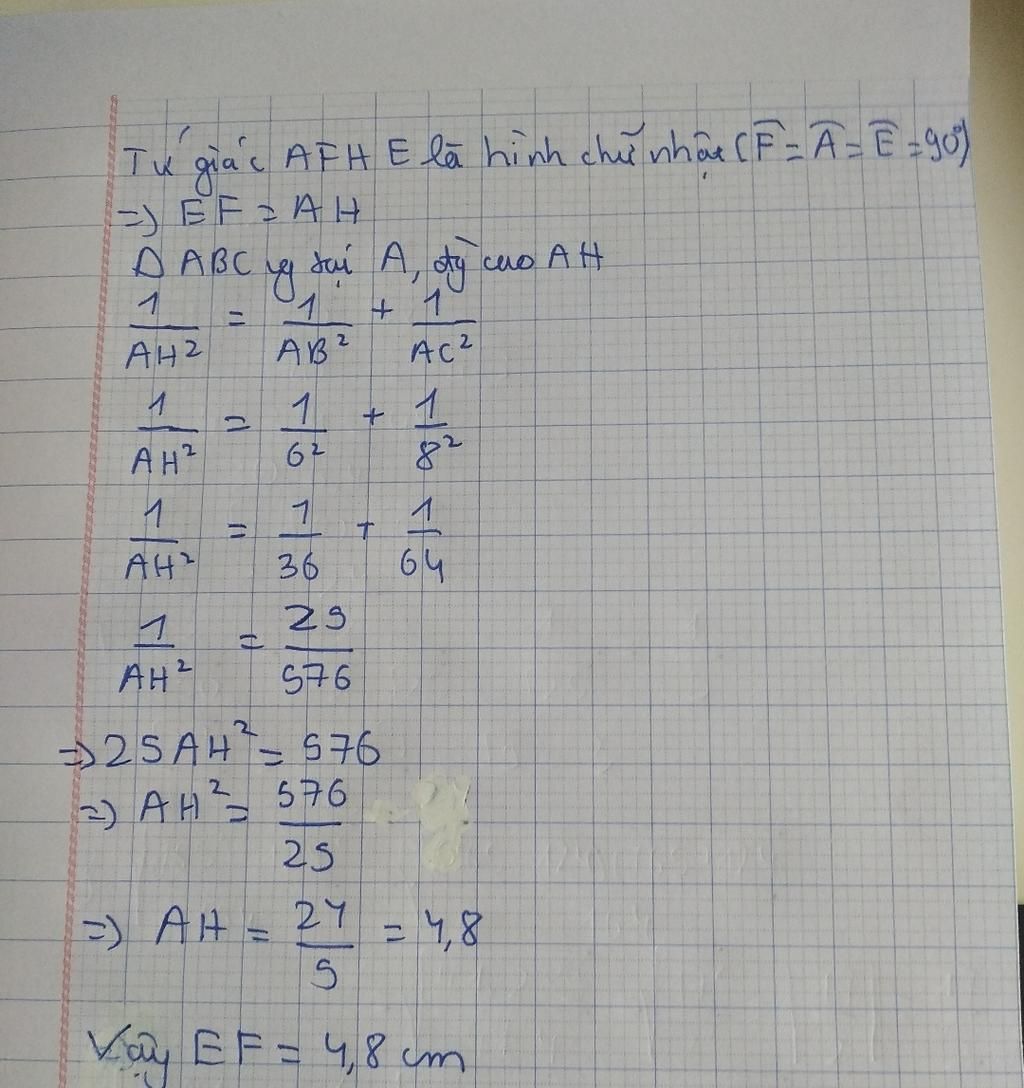 Tứ giác AFHE là hình chữ nhật (F̂ = Â = Ê = 90°)
=> EF = AH
Δ ABC vg tại A, đg cao AH
1/AH² = 1/AB² + 1/AC²
1/AH² = 1/6² + 1/8²
1/AH² = 1/36 + 1/64
1/AH² = 25/576
=> 25AH² = 576
=> AH² = 576/25
=> AH = 24/5 = 4,8
Vậy EF = 4,8 cm